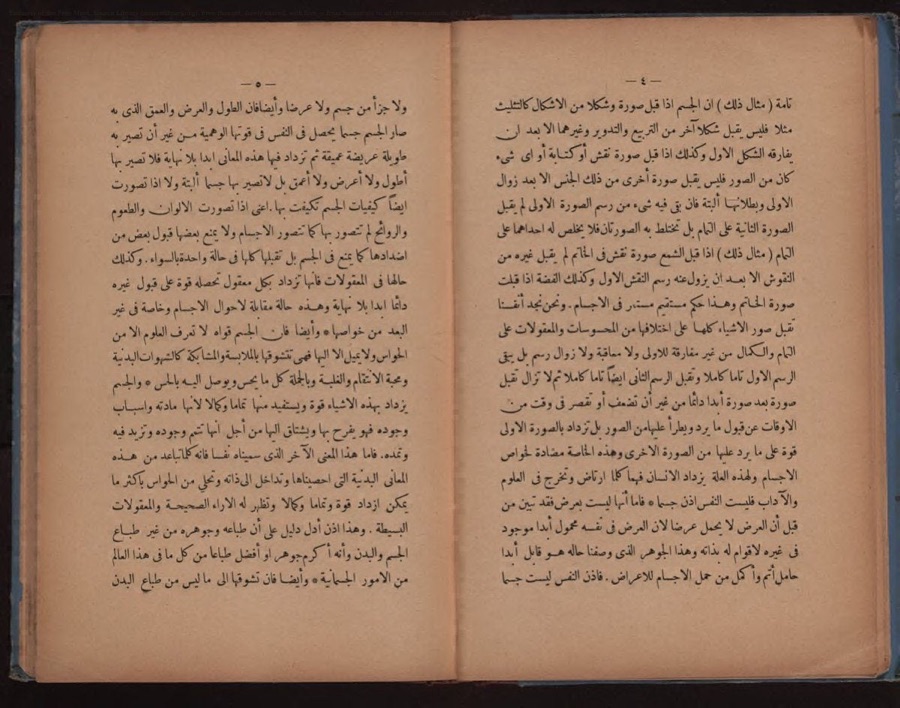 — ٤ —
تامة ( مثال ذلك ) ان الجسم اذا قبل صورة وشكلا من الاشكال كالتثليث
مثلا فليس يقبل شكلا آخر من التربيع والتدوير وغيرهما الا بعد ان
يفارقه الشكل الاول وكذلك اذا قبل صورة نقش أو كتابة أو اى شىء
كان من الصور فليس يقبل صورة أخرى من ذلك الجنس الا بعد زوال
الاولى وبطلانها ألبتة فان بقى فيه شىء من رسم الصورة الاولى لم يقبل
الصورة الثانية على التمام بل تختلط به الصورتان فلا يخلص له احداهما على
التمام ( مثال ذلك ) اذا قبل الشمع صورة نقش فى الخاتم لم يقبل غيره من
النقوش الا بعد ان يزول عنه رسم النقش الاول وكذلك الفضة اذا قبلت
صورة الخاتم وهذا حكم مستقيم مستمر فى الاجسام . ونحن نجد أنفسنا
تقبل صور الاشياء كلها على اختلافها من المحسوسات والمعقولات على
التمام والكمال من غير مفارقة للاولى ولا معاقبة ولا زوال رسم بل يبقى
الرسم الاول تاما كاملا وتقبل الرسم الثانى ايضا تاما كاملا ثم لا تزال تقبل
صورة بعد صورة أبدا دائما من غير أن تضعف أو تقصر فى وقت من
الاوقات عن قبول ما يرد ويطرأ عليها من الصور بل تزداد بالصورة الاولى
قوة على ما يرد عليها من الصورة الاخرى وهذه الخاصة مضادة لخواص
الاجسام ولهذه العلة يزداد الانسان فهما كلما ارتاض وتخرج فى العلوم
والآداب فليست النفس اذن جسما * فاما أنها ليست بعرض فقد تبين من
قبل أن العرض لا يحمل عرضا لان العرض فى نفسه محمول أبدا موجود
فى غيره لاقوام له بذاته وهذا الجوهر الذى وصفنا حاله هو قابل أبدا
حامل أتم وأكمل من حمل الاجسام للاعراض . فاذن النفس ليست جسما
— ٥ —
ولا جزأ من جسم ولا عرضا وأيضا فان الطول والعرض والعمق الذى به
صار الجسم جسما يحصل فى النفس فى قوتها الوهمية من غير أن تصير به
طويلة عريضة عميقة ثم تزداد فيها هذه المعانى ابدا بلا نهاية فلا تصير بها
أطول ولا أعرض ولا أعمق بل لا تصير بها جسما ألبتة ولا اذا تصورت
ايضا كيفيات الجسم تكيفت بها . اعنى اذا تصورت الالوان والطعوم
والروائح لم تتصور بها كما تتصور الاجسام ولا يمنع بعضها قبول بعض من
اضدادها كما يمنع فى الجسم بل تقبلها كلها فى حالة واحدة بالسواء . وكذلك
حالها فى المعقولات فانها تزداد بكل معقول تحصله قوة على قبول غيره
دائما ابدا بلا نهاية وهذه حالة مقابلة لاحوال الاجسام وخاصة فى غير
البعد من خواصها * وأيضا فان الجسم قواه لا تعرف العلوم الا من
الحواس ولا يميل الا اليها فهى تتشوقها بالملابسة والمشابكة كالشهوات البدنية
ومحبة الانتقام والغلبة وبالجملة كل ما يحس ويوصل اليه بالحس * والجسم
يزداد بهذه الاشياء قوة ويستفيد منها تماما وكمالا لانها مادته واسباب
وجوده فهو يفرح بها ويشتاق اليها من أجل انها تتمم وجوده وتزيد فيه
وتمده . فاما هذا المعنى الآخر الذى سميناه نفسا فانه كلما تباعد من هذه
المعانى البدنية التى احصيناها وتداخل الى ذاته وتخلى عن الحواس باكثر ما
يمكن ازداد قوة وتماما وكمالا وتظهر له الاراء الصحيحة والمعقولات
البسيطة . وهذا اذن أدل دليل على أن طباعه وجوهره من غير طباع
الجسم والبدن وأنه أكرم جوهر او أفضل طباعا من كل ما فى هذا العالم
من الامور الجسمانية * وأيضا فان تشوقها الى ما ليس من طباع البدن